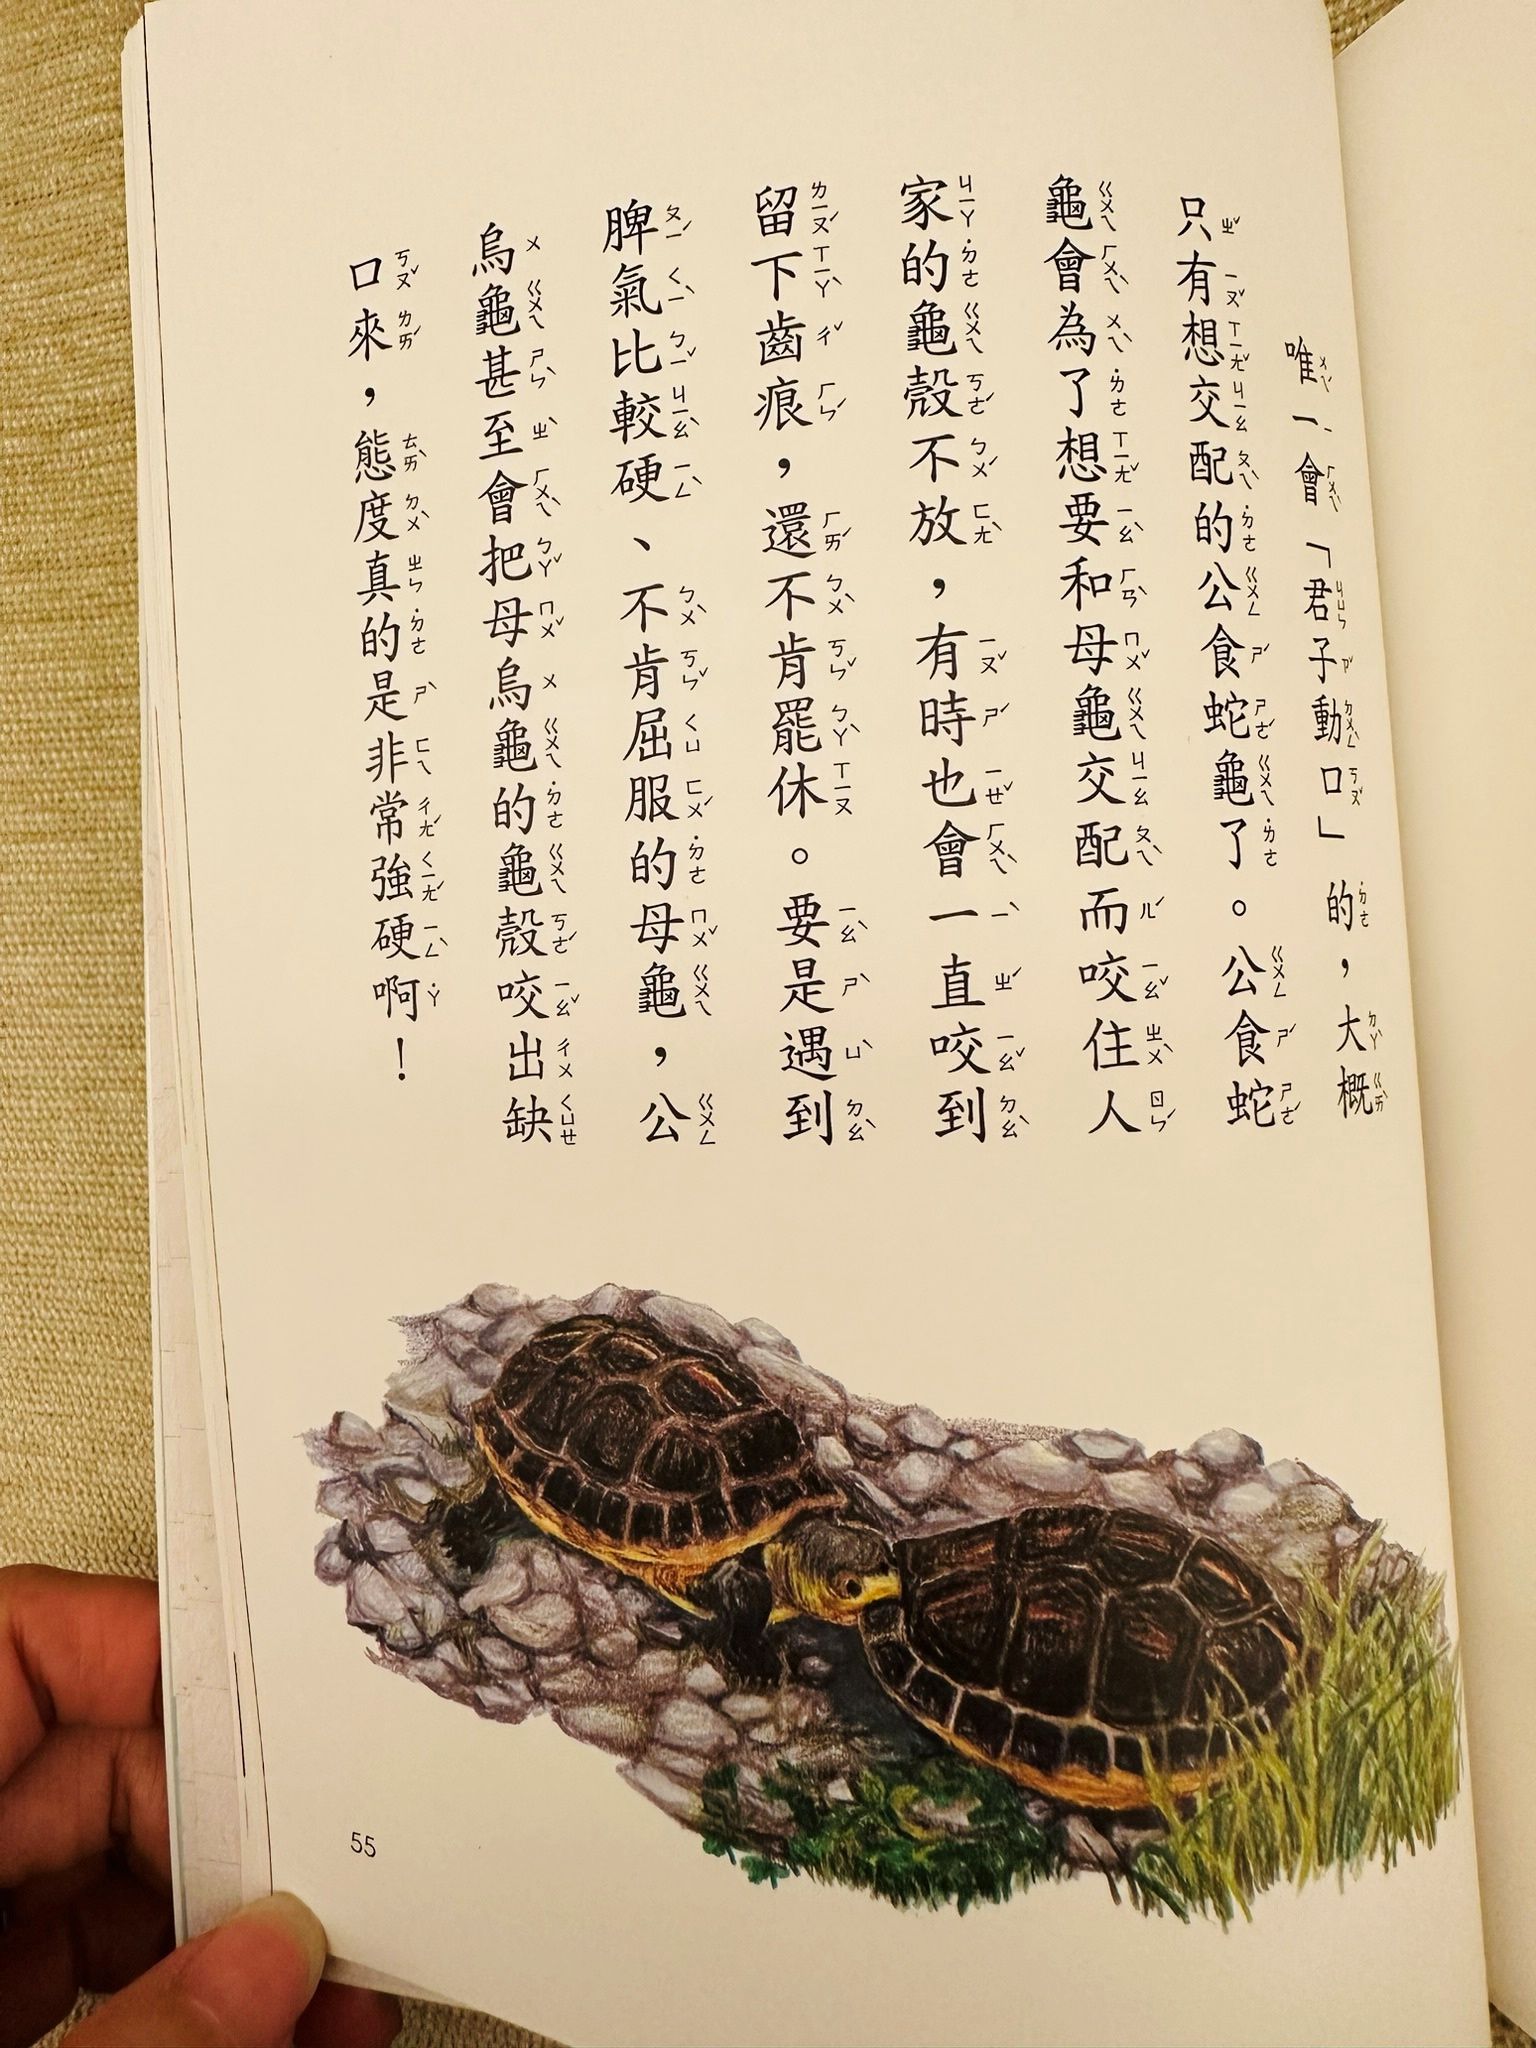 唯一會「君子動口」的，大概
只有想交配的公食蛇龜了。公食蛇
龜會為了想要和母龜交配而咬住人
家的龜殼不放，有時也會一直咬到
留下齒痕，還不肯罷休。要是遇到
脾氣比較硬、不肯屈服的母龜，公
烏龜甚至會把母烏龜的龜殼咬出缺
口來，態度真的是非常強硬啊！
55